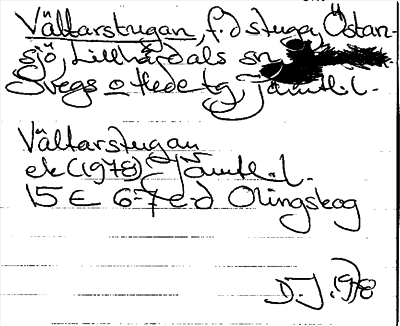 Vältarstugan, f.d stuga, Östan-
sjö, Lillhärdals sn
Svegs o Hede tg, Jämtl. l.
Vältarstugan
ek (1978) Jämtl. l.
15 E 6-7 e-d Olingskog
D. J. 1978